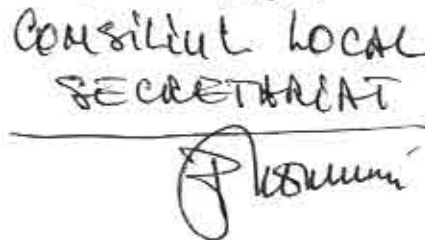 CONSILIUL LOCAL
SECRETARIAT